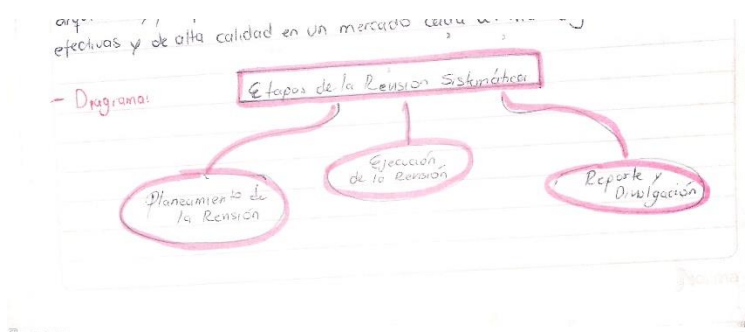 efectivas y de alta calidad en un mercado
- Diagrama:
Etapas de la Revisión Sistemática
Planeamiento de
la Revisión
Ejecución
de la Revisión
Reporte y
Divulgación